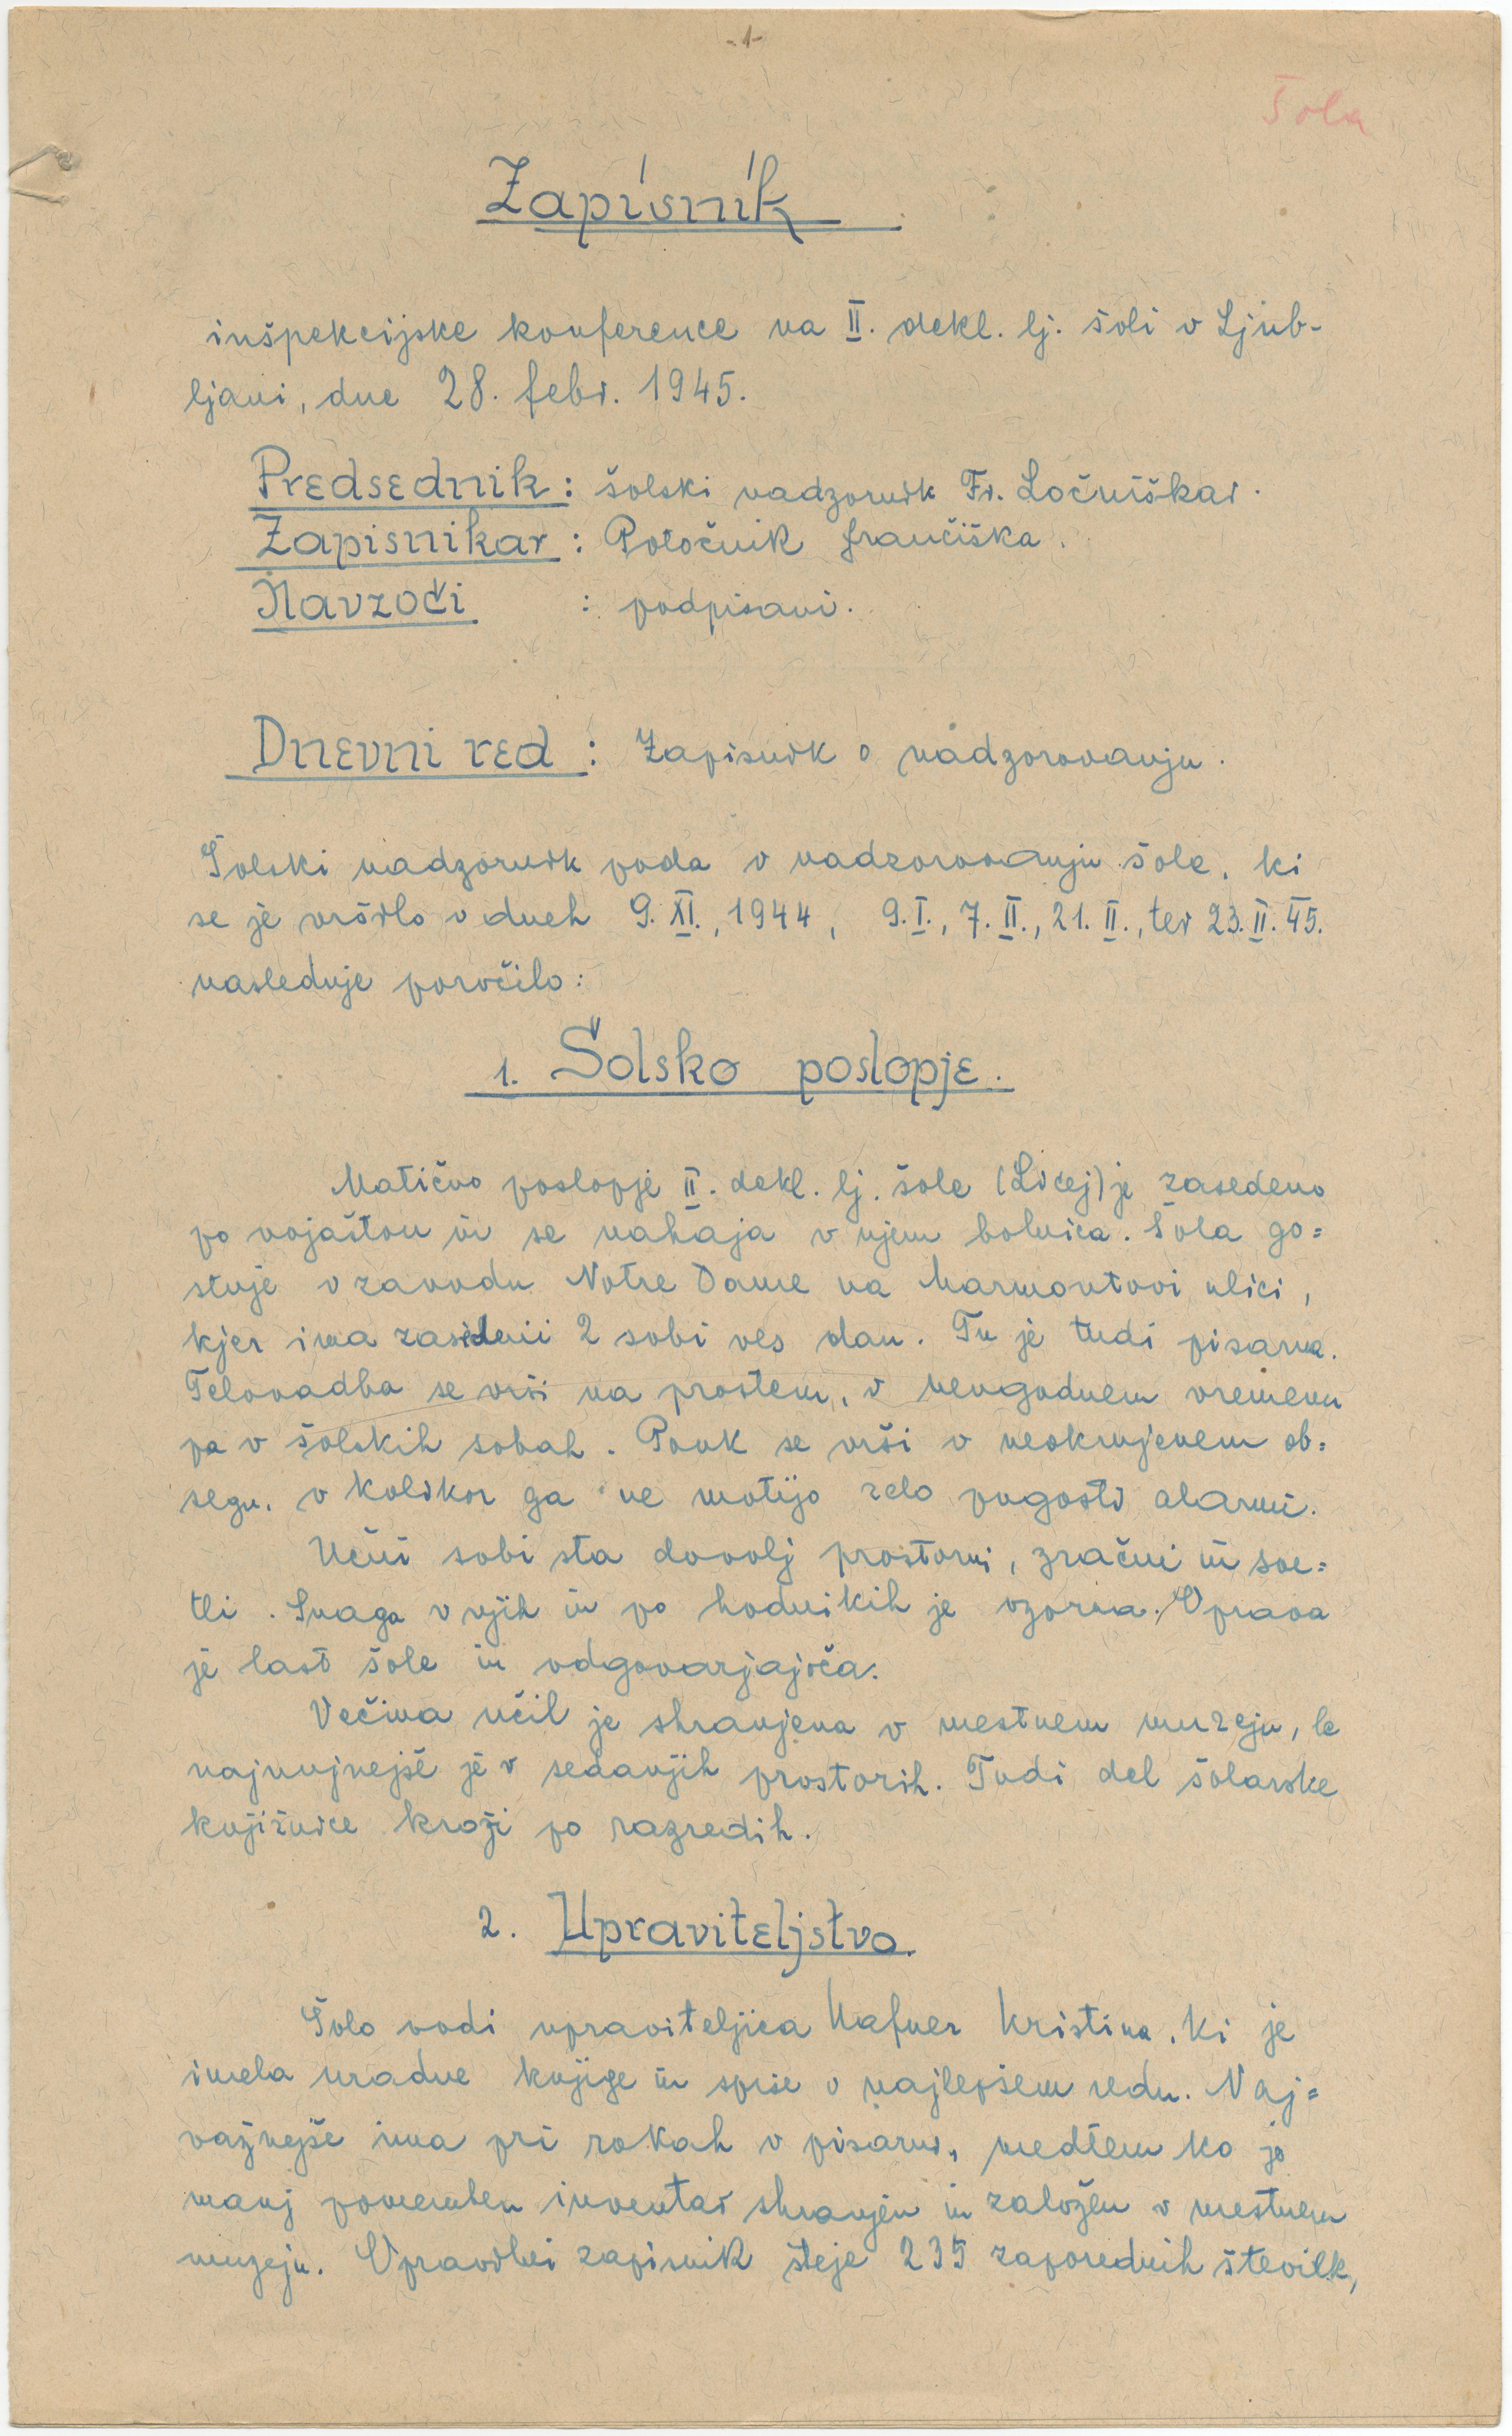 -1-
Šola
Zapisnik
inšpekcijske konference na II. dekl. lj. šoli v Ljub-
ljani, dne 28. febr. 1945.
Predsednik: šolski nadzornik Fr. Ločniškar.
Zapisnikar: Potočnik Frančiška.
Navzoči : podpisani.
Dnevni red: Zapisnik o nadzorovanju.
Šolski nadzornik poda o nadzorovanju šole, ki
se je vršilo v dneh 9. XI., 1944, 9. I., 7. II., 21. II., ter 23. II. 45.
nasleduje poročilo:
1. Šolsko poslopje.
Matično poslopje II. dekl. lj. šole (Licej) je zasedeno
po vojaštvu in se nahaja v njem bolnica. Šola go=
stuje v zavodu Notre Dame na Marmontovi ulici,
kjer ima zasedeni 2 sobi ves dan. Tu je tudi pisarna.
Telovadba se vrši na prostem, v neugodnem vremenu
pa v šolskih sobah. Pouk se vrši v neokrnjenem ob=
segu, v kolikor ga ne motijo zelo pogosti alarmi.
Učni sobi sta dovolj prostorni, zračni in sve=
tli. Snaga v njih in po hodnikih je vzorna. Oprava
je last šole in odgovarjajoča.
Večina učil je shranjena v mestnem muzeju, le
najnujnejše je v sedanjih prostorih. Tudi del šolarske
knjižnice kroži po razredih.
2. Upraviteljstvo.
Šolo vodi upraviteljica Hafner Kristina, ki je
imela uradne knjige in spise v najlepšem redu. Naj=
važnejše ima pri rokah v pisarni, medtem ko je
manj pomemben inventar shranjen in založen v mestnem
muzeju. Opravilni zapisnik šteje 235 zaporednih številk,